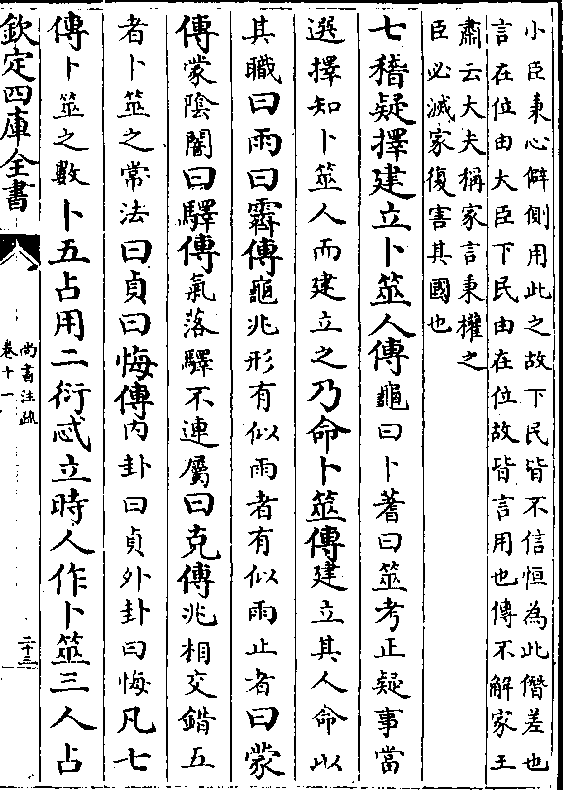 小臣秉心僻側用此之故下民皆不信恒為此僭差也
言在位由大臣下民由在位故皆言用也傳不解家王
肅云大夫稱家言秉權之
臣必滅家復害其國也
七稽疑擇建立卜筮人傳龜曰卜蓍曰筮考正疑事當
選擇知卜筮人而建立之乃命卜筮傳建立其人命以
其職曰雨曰霽傳龜兆形有似雨者有似雨止者曰蒙
傳蒙陰闇曰驛傳氣落驛不連屬曰克傳兆相交錯五
者卜筮之常法曰貞曰悔傳内卦曰貞外卦曰悔凡七
傳卜筮之數卜五占用二衍忒立時人作卜筮三人占
欽定四庫全書
尚書注疏
卷十一
二十三